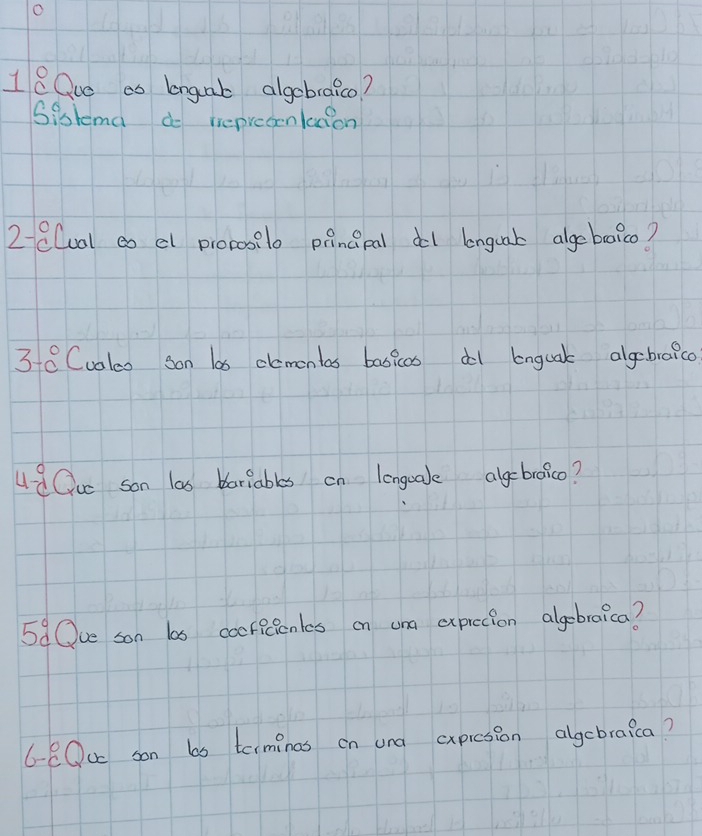 1 ¿Que es lenguaje algebraico?
Sistema de representacion
2-¿Cual es el proposito principal del lenguaje algebraico?
3-¿Cuales son los elementos basicos del lenguaje algebraico
4-¿Que son las variables en lenguaje algebraico?
5¿Que son los coeficientes en una exprecion algebraica?
6-¿Que son los terminos en una expresion algebraica?